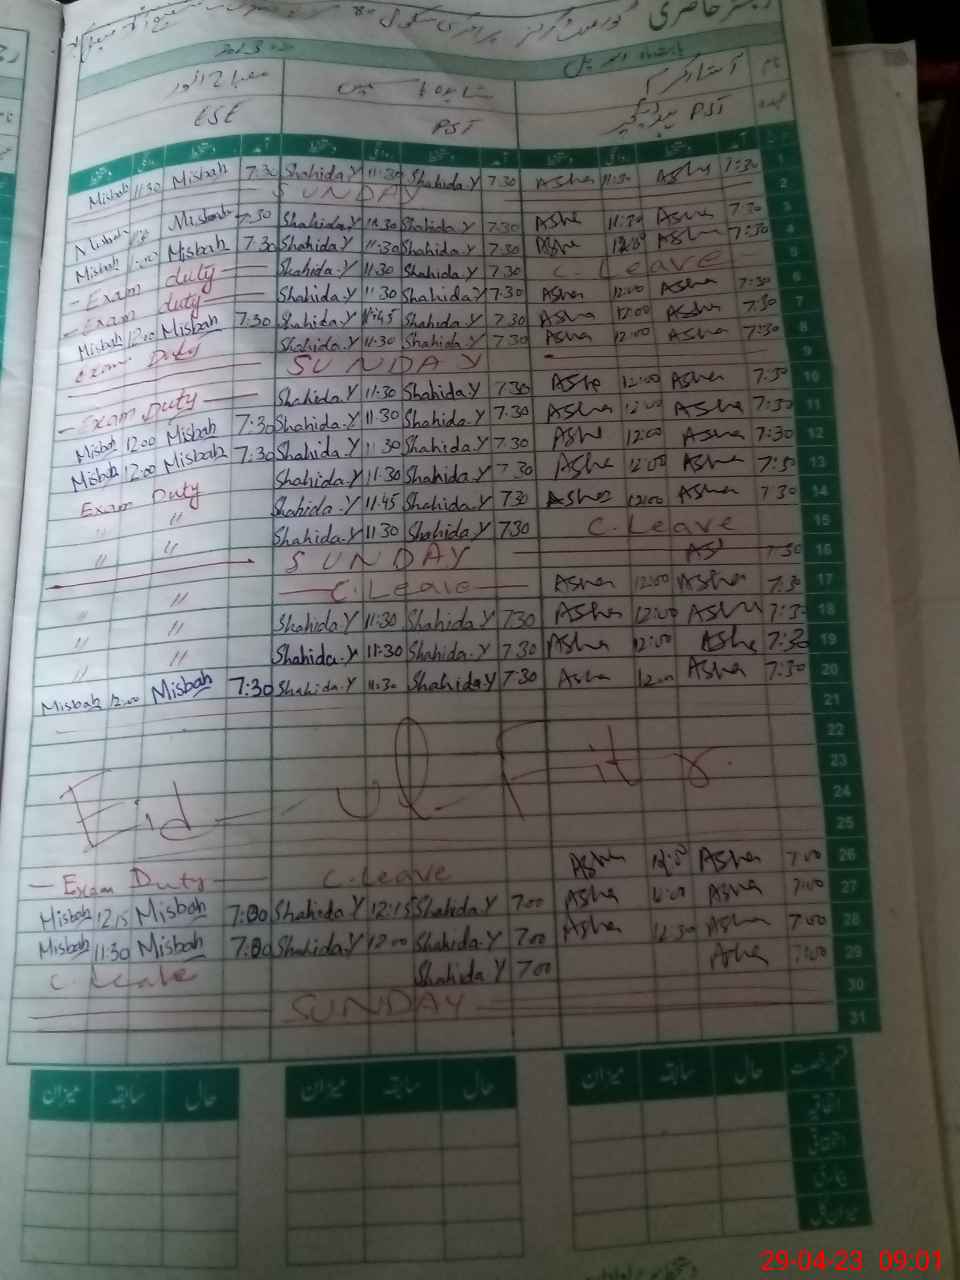 رجسٹر حاضری گورنمنٹ گرلز پرائمری سکول
بابت ماہ اپریل 2023
نام
مصباح انور
عہدہ PST ہیڈ ٹیچر PST ESE
Misbah 11:30 Misbah 7:30 Shahida.Y 11:30 Shahida.Y 7:30 Asha 11:30 Asha 7:30 1
SUNDAY 2
Misbah Misbah 7:30 Shahida.Y 11:30 Shahida.Y 7:30 Asha 11:30 Asha 7:30 3
Misbah 12:00 Misbah 7:30 Shahida.Y 11:30 Shahida.Y 7:30 Asha Asha 7:30 4
- Exam duty - Shahida.Y 11:30 Shahida.Y 7:30 C. Leave 5
- Exam duty - Shahida.Y 11:30 Shahida.Y 7:30 Asha 12:00 Asha 7:30 6
Misbah 12:00 Misbah 7:30 Shahida.Y 11:45 Shahida.Y 7:30 Asha 12:00 Asha 7:30 7
exam Duty Shahida.Y 11:30 Shahida.Y 7:30 Asha 12:00 Asha 7:30 8
SUNDAY 9
- Exam Duty - Shahida.Y 11:30 Shahida.Y 7:30 Asha 12:00 Asha 7:30 10
Misbah 12:00 Misbah 7:30 Shahida.Y 11:30 Shahida.Y 7:30 Asha 12:00 Asha 7:30 11
Misbah 12:00 Misbah 7:30 Shahida.Y 11:30 Shahida.Y 7:30 Asha 12:00 Asha 7:30 12
Exam Duty Shahida.Y 11:30 Shahida.Y 7:30 Asha 12:00 Asha 7:30 13
" " Shahida.Y 11:45 Shahida.Y 7:30 Asha 12:00 Asha 7:30 14
" " Shahida.Y 11:30 Shahida.Y 7:30 C. Leave 15
SUNDAY 7:30 16
" " C. Leave Asha 12:00 Asha 7:30 17
" " Shahida.Y 11:30 Shahida.Y 7:30 Asha 12:00 Asha 7:30 18
" " Shahida.Y 11:30 Shahida.Y 7:30 Asha 12:00 Asha 7:30 19
Misbah 12:00 Misbah 7:30 Shahida.Y 11:30 Shahida.Y 7:30 Asha 12:00 Asha 7:30 20
21
22
23
Eid - ul - Fitr 24
25
- Exam Duty - C. Leave Asha Asha 7:00 26
Misbah 12:15 Misbah 7:00 Shahida.Y 12:15 Shahida.Y 7:00 Asha Asha 7:00 27
Misbah 11:30 Misbah 7:00 Shahida.Y 12:00 Shahida.Y 7:00 Asha 12:30 Asha 7:00 28
C. Leave Shahida Y 7:00 Asha 7:00 29
SUNDAY 30
31
قسم رخصت حال سابقہ میزان حال سابقہ میزان حال سابقہ میزان
اتفاقیہ
استحقاقی
بیماری
میزان کل
29-04-23 09:01